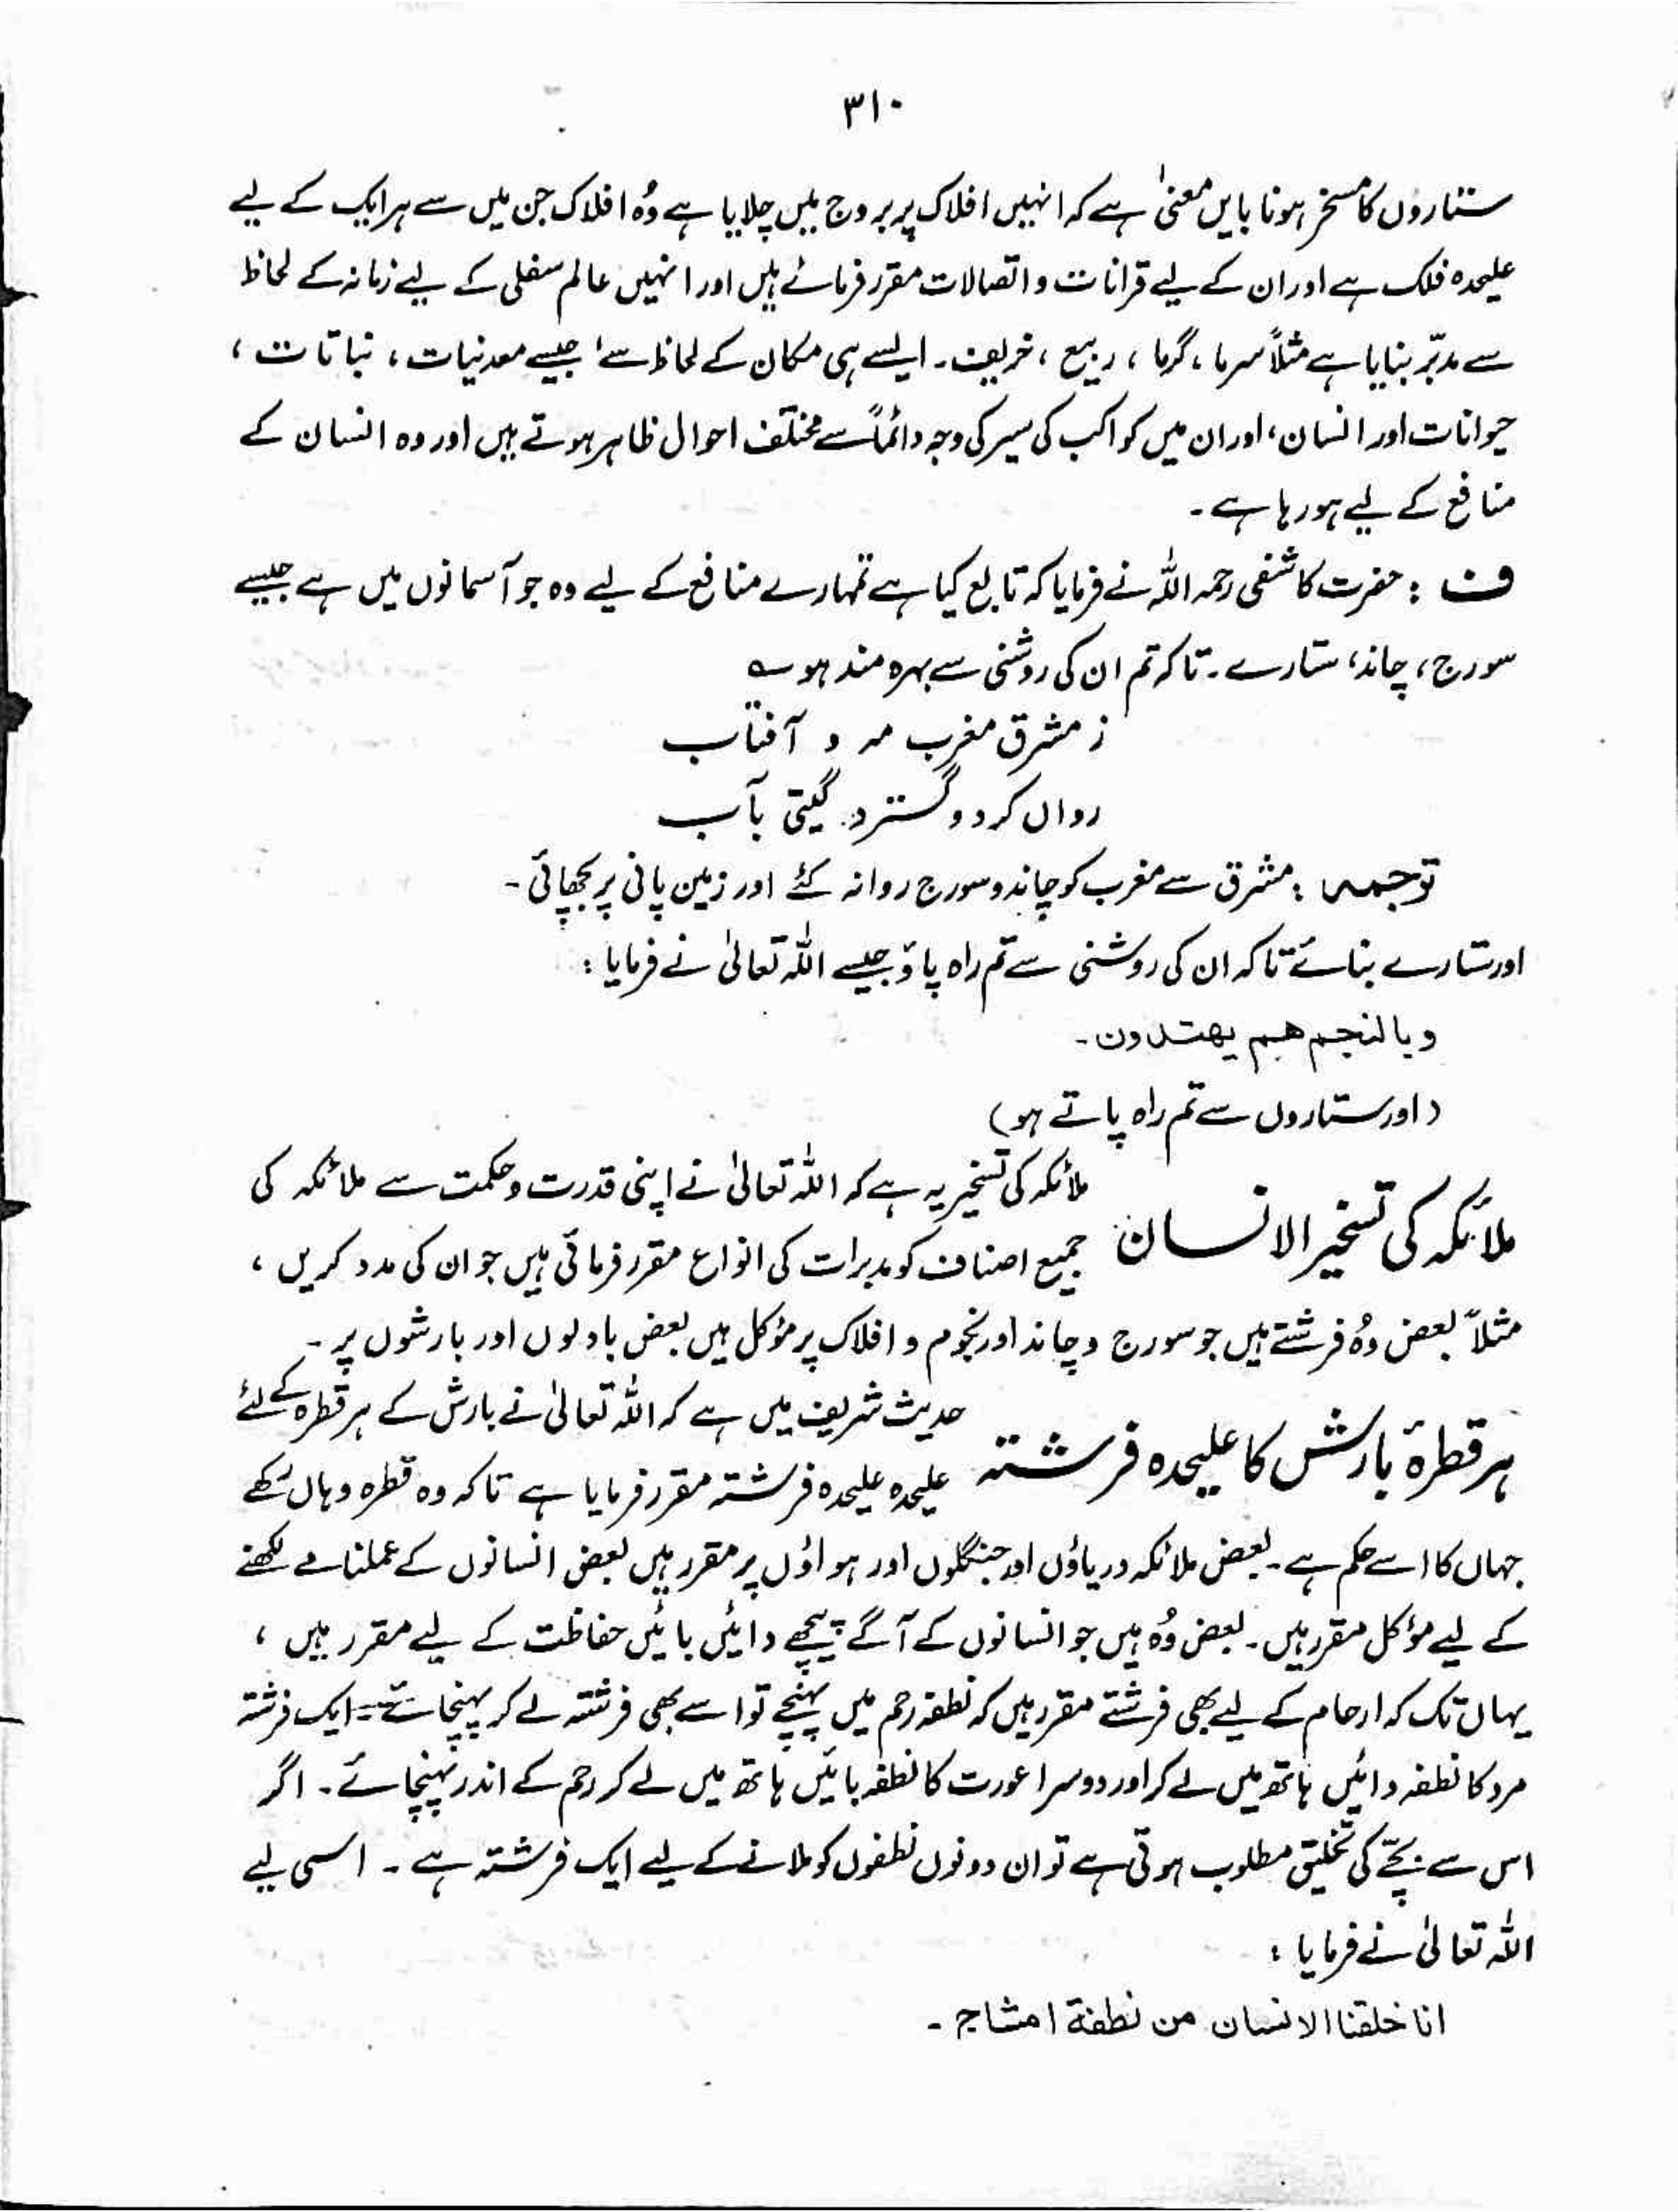 ۳۱۰
ستاروں کا مسخر ہونا بایں معنیٰ ہے کہ انہیں افلاک پر بروج میں چلایا ہے وُہ افلاک جن میں سے ہر ایک کے لیے
علیحدہ فلک ہے اور ان کے لیے قرانات و اتصالات مقرر فرمائے ہیں اور انہیں عالم سفلی کے لیے زمانہ کے لحاظ
سے مدبّر بنایا ہے مثلاً سرما ، گرما ، ربیع ، خریف ۔ ایسے ہی مکان کے لحاظ سے ، جیسے معدنیات ، نباتات ،
حیوانات اور انسان ، اور ان میں کواکب کی سیر کی وجہ دائماً سے مختلف احوال ظاہر ہوتے ہیں اور وہ انسان کے
منافع کے لیے ہو رہا ہے ۔
ف : حضرت کاشفی رحمہ اللہ نے فرمایا کہ تابع کیا ہے تمہارے منافع کے لیے وہ جو آسمانوں میں ہے جیسے
سورج ، چاند ، ستارے ۔ تاکہ تم ان کی روشنی سے بہرہ مند ہو ؎
ز مشرق مغرب مہ و آفتاب
رواں کرد و گسترد گیتی بآب
توجمہ : مشرق سے مغرب کو چاند و سورج روانہ کئے اور زمین پانی پر بچھائی ۔
اور ستارے بنائے تاکہ ان کی روشنی سے تم راہ پاؤ جیسے اللہ تعالیٰ نے فرمایا :
و بالنجم ھم یھتدون ۔
( اور ستاروں سے تم راہ پاتے ہو )
ملائکہ کی تسخیر الانسان ملائکہ کی تسخیر یہ ہے کہ اللہ تعالیٰ نے اپنی قدرت و حکمت سے ملائکہ کی
جمیع اصناف کو مدبرات کی انواع مقرر فرمائی ہیں جو ان کی مدد کریں ،
مثلاً بعض وُہ فرشتے ہیں جو سورج و چاند اور نجوم و افلاک پر مؤکل ہیں بعض بادلوں اور بارشوں پر ۔
ہر قطرۂ بارش کا علیحدہ فرشتہ حدیث شریف میں ہے کہ اللہ تعالیٰ نے بارش کے ہر قطرہ کے لئے
علیحدہ علیحدہ فرشتہ مقرر فرمایا ہے تاکہ وہ قطرہ وہاں رکھے
جہاں کا اسے حکم ہے ۔ بعض ملائکہ دریاؤں اور جنگلوں اور ہواؤں پر مقرر ہیں بعض انسانوں کے عملنامے لکھنے
کے لیے مؤکل مقرر ہیں ۔ بعض وُہ ہیں جو انسانوں کے آگے پیچھے دائیں بائیں حفاظت کے لیے مقرر ہیں ،
یہاں تک کہ ارحام کے لیے بھی فرشتے مقرر ہیں کہ نطفہ رحم میں پہنچے تو اسے بھی فرشتہ لے کر پہنچائے ۔ ایک فرشتہ
مرد کا نطفہ دائیں ہاتھ میں لے کر اور دوسرا عورت کا نطفہ بائیں ہاتھ میں لے کر رحم کے اندر پہنچائے ۔ اگر
اس سے بچّے کی تخلیق مطلوب ہوتی ہے تو ان دونوں نطفوں کو ملانے کے لیے ایک فرشتہ ہے ۔ اسی لیے
اللہ تعالیٰ نے فرمایا :
انا خلقنا الانسان من نطفۃ امشاج ۔